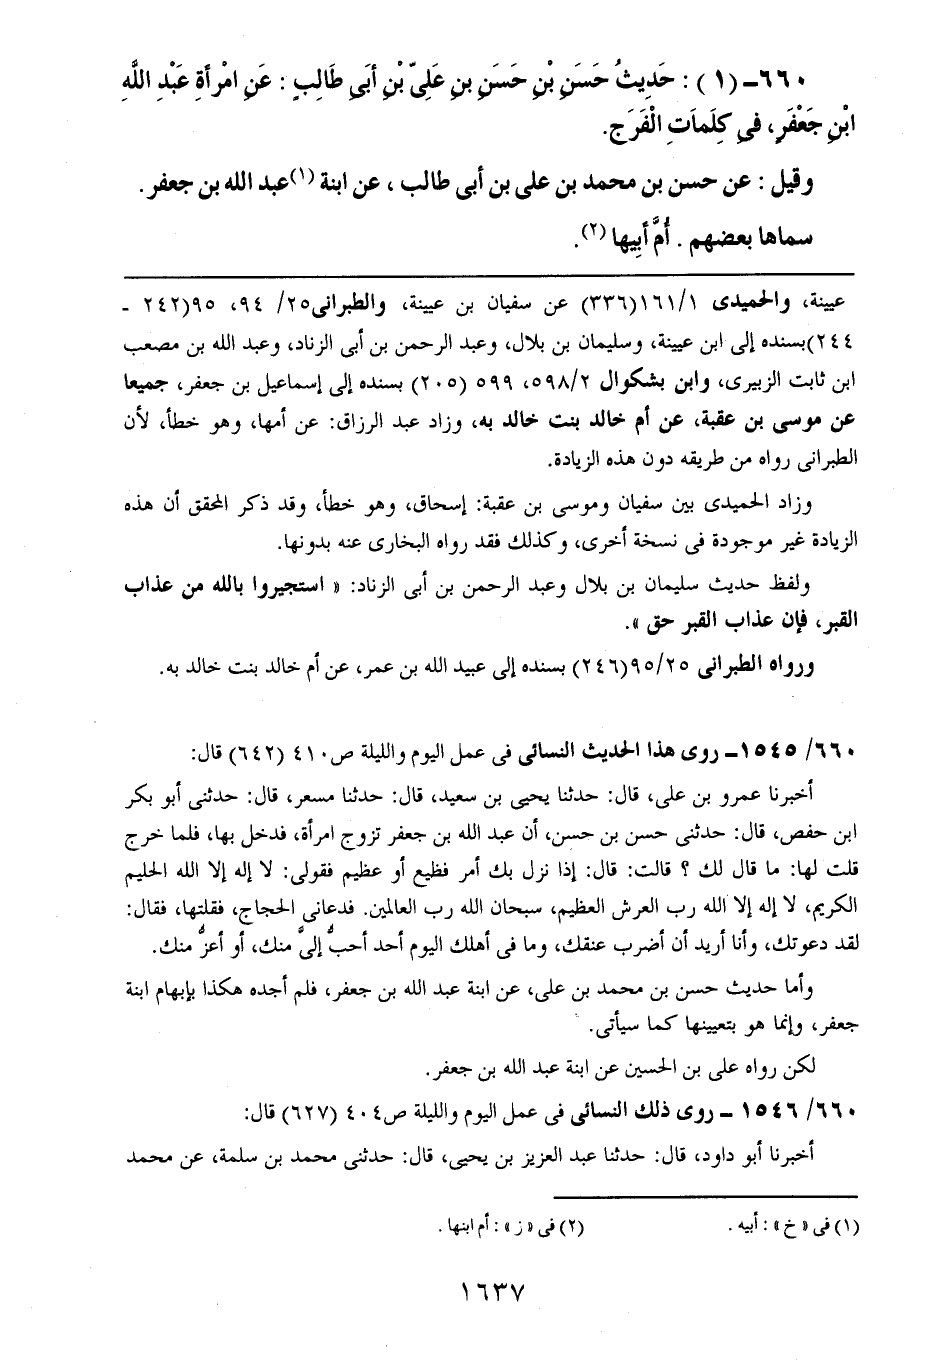 ٦٦٠ـ (١) : حَدِيثُ حَسَنِ بْنِ حَسَنِ بنِ عَلِىِّ بْنِ أَبَى طَالِبٍ : عَنِ امْرأةِ عَبْدِ اللَّهِ
ابْنِ جَعْفَرٍ، فىِ كِلَماَتِ الْفَرَجِ.
وقيل : عن حسن بن محمد بن على بن أبى طالب ، عن ابنة (١)عبد الله بن جعفر.
سماها بعضهم . أُمَّ أَبِيها (٢).
عيينة، والحميدى ١٦١/١(٣٣٦) عن سفيان بن عيينة، والطبرانى٢٥/ ٩٤، ٩٥(٢٤٢ ـ
٢٤٤)بسنده إلى ابن عيينة، وسليمان بن بلال، وعبد الرحمن بن أبى الزناد، وعبد الله بن مصعب
ابن ثابت الزبيرى، وابن بشكوال ٥٩٨/٢، ٥٩٩ (٢٠٥) بسنده إلى إسماعيل بن جعفر، جميعا
عن موسى بن عقبة، عن أم خالد بنت خالد به، وزاد عبد الرزاق: عن أمها، وهو خطأ، لأن
الطبرانى رواه من طريقه دون هذه الزيادة.
وزاد الحميدى بين سفيان وموسى بن عقبة: إسحاق، وهو خطأ، وقد ذكر المحقق أن هذه
الزيادة غير موجودة فى نسخة أخرى، وكذلك فقد رواه البخارى عنه بدونها.
ولفظ حديث سليمان بن بلال وعبد الرحمن بن أبى الزناد: « استجيروا بالله من عذاب
القبر، فإن عذاب القبر حق ».
ورواه الطبرانى ٩٥/٢٥(٢٤٦) بسنده إلى عبيد الله بن عمر، عن أم خالد بنت خالد به.
٦٦٠/ ١٥٤٥ـ روى هذا الحديث النسائى فى عمل اليوم والليلة ص٤١٠ (٦٤٢) قال:
أخبرنا عمرو بن على، قال: حدثنا يحيى بن سعيد، قال: حدثنا مسعر، قال: حدثنى أبو بكر
ابن حفص، قال: حدثنى حسن بن حسن، أن عبد الله بن جعفر تزوج امرأة، فدخل بها، فلما خرج
قلت لها: ما قال لك ؟ قالت: قال: إذا نزل بك أمر فظيع أو عظيم فقولى: لا إله إلا الله الحليم
الكريم، لا إله إلا الله رب العرش العظيم، سبحان الله رب العالمين. فدعانى الحجاج، فقلتها، فقال:
لقد دعوتك، وأنا أريد أن أضرب عنقك، وما فى أهلك اليوم أحد أحبُّ إلىَّ منك، أو أعزُّ منك.
وأما حديث حسن بن محمد بن على، عن ابنة عبد الله بن جعفر، فلم أجده هكذا بإبهام ابنة
جعفر، وإنما هو بتعيينها كما سيأتى.
لكن رواه على بن الحسين عن ابنة عبد الله بن جعفر.
٦٦٠/ ١٥٤٦ ـ روى ذلك النسائى فى عمل اليوم والليلة ص٤٠٤ (٦٢٧) قال:
أخبرنا أبو داود، قال: حدثنا عبد العزيز بن يحيى، قال: حدثنى محمد بن سلمة، عن محمد
(١) فى « خ » : أبيه . (٢) فى « ز » : أم ابنها .
١٦٣٧